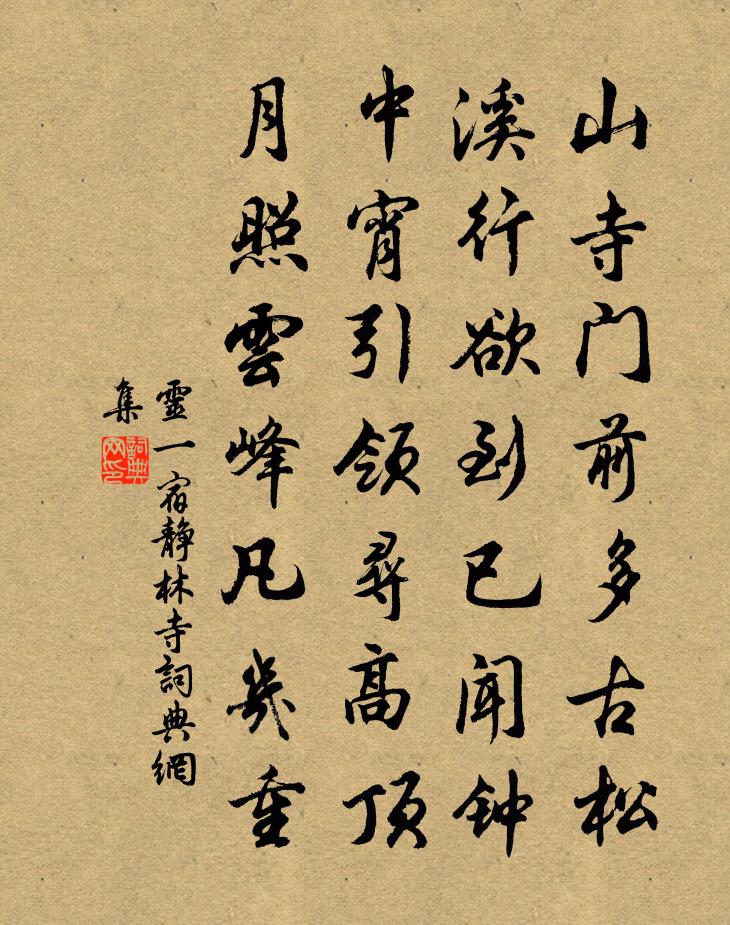 山寺门前多古松
溪行欲到已闻钟
中宵引领尋高顶
月照雲峰凡幾重
靈一宿静林寺詞典網
集
詞典
网印